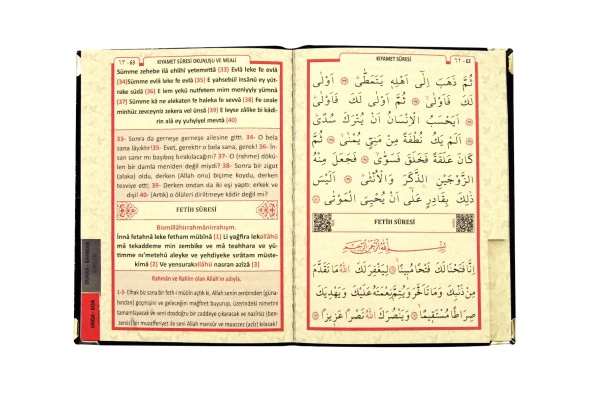 ٦٣ - 63
KIYAMET SÛRESİ OKUNUŞU VE MEALİ
Sümme zehebe ilâ ehlihî yetemettâ (33) Evlâ leke fe evlâ
(34)Sümme evlâ leke fe evlâ (35) E yahsebül insânü ey yüt-
rake südâ (36) E lem yekü nutfetem mim meniyyiy yümnâ
(37) Sümme kâ ne alekaten fe haleka fe sevvâ (38) Fe ceale
minhüz zevceyniz zekera vel ünsâ (39) E leyse zâlike bi kâdi-
rin alâ ey yuhyiyel mevtâ (40)
33- Sonra da gerneşe gerneşe ailesine gitti. 34- O bela
sana lâyıktır! 35- Evet, gerektir o bela sana, gerek! 36- İn-
san sanır mı başıboş bırakılacağını? 37- O (rahme) dökü-
len bir damla meniden değil miydi? 38- Sonra bir zigot
(alaka) oldu, derken (Allah onu) biçime koydu, derken
tesviye etti; 39- Derken ondan da iki eşi yaptı: erkek ve
dişi! 40- (Artık) o ölüleri diriltmeye kâdir değil mi?
FETİH SÛRESİ
Bismillâhirrahmânirrahıym.
İnnâ fetahnâ leke fetham mübînâ (1) Li yağfira lekallâhü
mâ tekaddeme min zembike ve mâ teahhara ve yü-
timme nı'metehû aleyke ve yehdiyeke sırâtam müste-
kîmâ (2) Ve yensurakallâhü nasran azîzâ (3)
Rahmân ve Rahîm olan Allah'ın adıyla.
1-3- Elhak biz sana bir feth-i mübîn açtık ki, Allah senin zenbinden (güna-
hından) geçmişini ve geleceğini mağfiret buyurup, üzerindeki nimetini
tamamlayacak ve seni dosdoğru bir caddeye çıkaracak ve nazîrsiz (ben-
zersiz) bir muzafferiyet ile seni Allah mansûr ve muazzez (azîz) kılacak!
KIYAMET SÛRESİ
٦٢ - 62
ثُمَّ ذَهَبَ اِلٰٓى اَهْلِهٖ يَتَمَطّٰىۜ ﴿٣٣﴾ اَوْلٰى
لَكَ فَاَوْلٰىۙ ﴿٣٤﴾ ثُمَّ اَوْلٰى لَكَ فَاَوْلٰىۜ ﴿٣٥﴾
اَيَحْسَبُ الْاِنْسَانُ اَنْ يُتْرَكَ سُدًىۜ ﴿٣٦﴾
اَلَمْ يَكُ نُطْفَةً مِنْ مَنِيٍّ يُمْنٰىۙ ﴿٣٧﴾ ثُمَّ
كَانَ عَلَقَةً فَخَلَقَ فَسَوّٰىۙ ﴿٣٨﴾ فَجَعَلَ مِنْهُ
الزَّوْجَيْنِ الذَّكَرَ وَالْاُنْثٰىۜ ﴿٣٩﴾ اَلَيْسَ
ذٰلِكَ بِقَادِرٍ عَلٰٓى اَنْ يُحْيِيَ الْمَوْتٰى ﴿٤٠﴾
FETİH SÛRESİ
بِسْمِ اللّٰهِ الرَّحْمٰنِ الرَّحِيمِ
اِنَّا فَتَحْنَا لَكَ فَتْحًا مُبِينًاۙ ﴿١﴾ لِيَغْفِرَ لَكَ اللّٰهُ مَا تَقَدَّمَ
مِنْ ذَنْبِكَ وَمَا تَاَخَّرَ وَيُتِمَّ نِعْمَتَهُ عَلَيْكَ وَيَهْدِيَكَ
صِرَاطًا مُسْتَقِيمًاۙ ﴿٢﴾ وَيَنْصُرَكَ اللّٰهُ نَصْرًا عَزِيزًا ﴿٣﴾